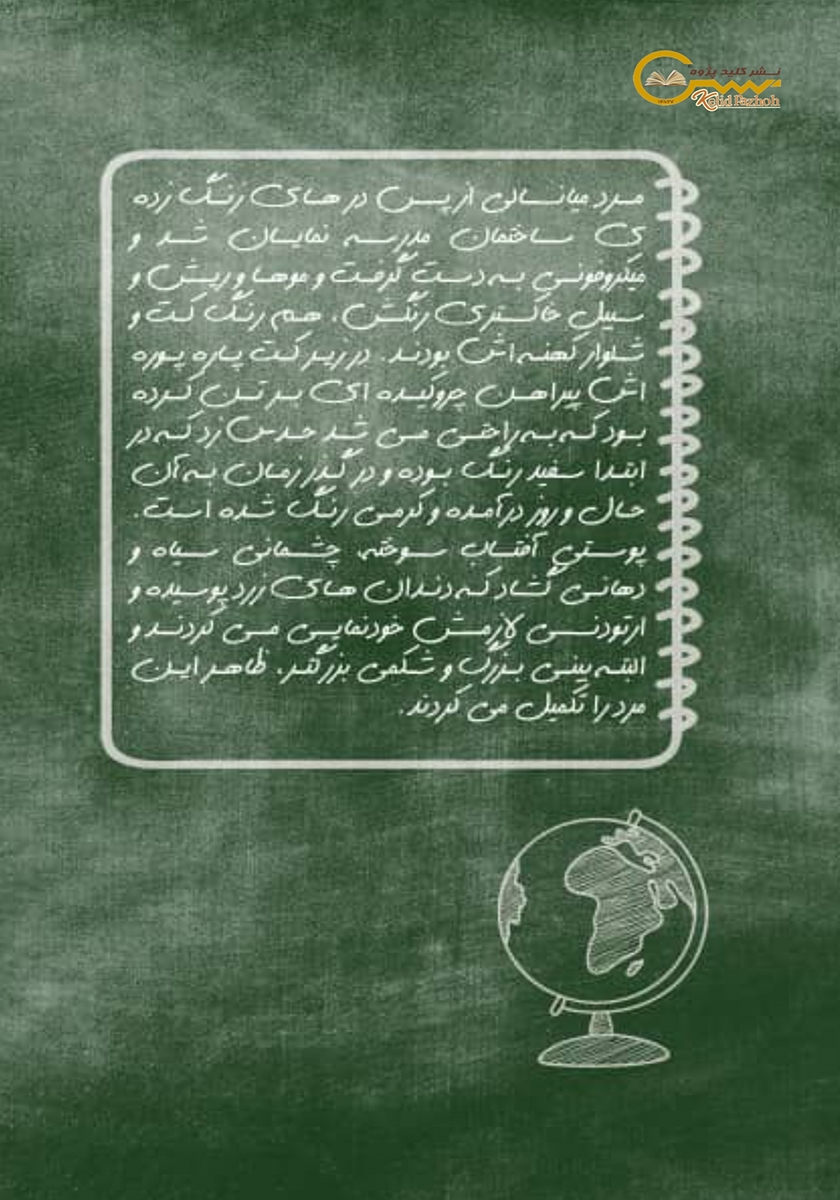 نشر کلید پژوه
Kelid Pazhoh
مرد میانسالی از پس در های زنگ زده
ی ساختمان مدرسه نمایان شد و
میکروفونی به دست گرفت و موها و ریش و
سبیل خاکستری رنگش، هم رنگ کت و
شلوار کهنه اش بودند. در زیر کت پاره پوره
اش پیراهن چروکیده ای بر تن کرده
بود که به راحتی می شد حدس زد که در
ابتدا سفید رنگ بوده و در گذر زمان به آن
حال و روز درآمده و کرمی رنگ شده است.
پوستی آفتاب سوخته، چشمانی سیاه و
دهانی گشاد که دندان های زرد پوسیده و
ارتودنسی لازمش خودنمایی می کردند و
البته بینی بزرگ و شکمی بزرگتر، ظاهر این
مرد را تکمیل می کردند.